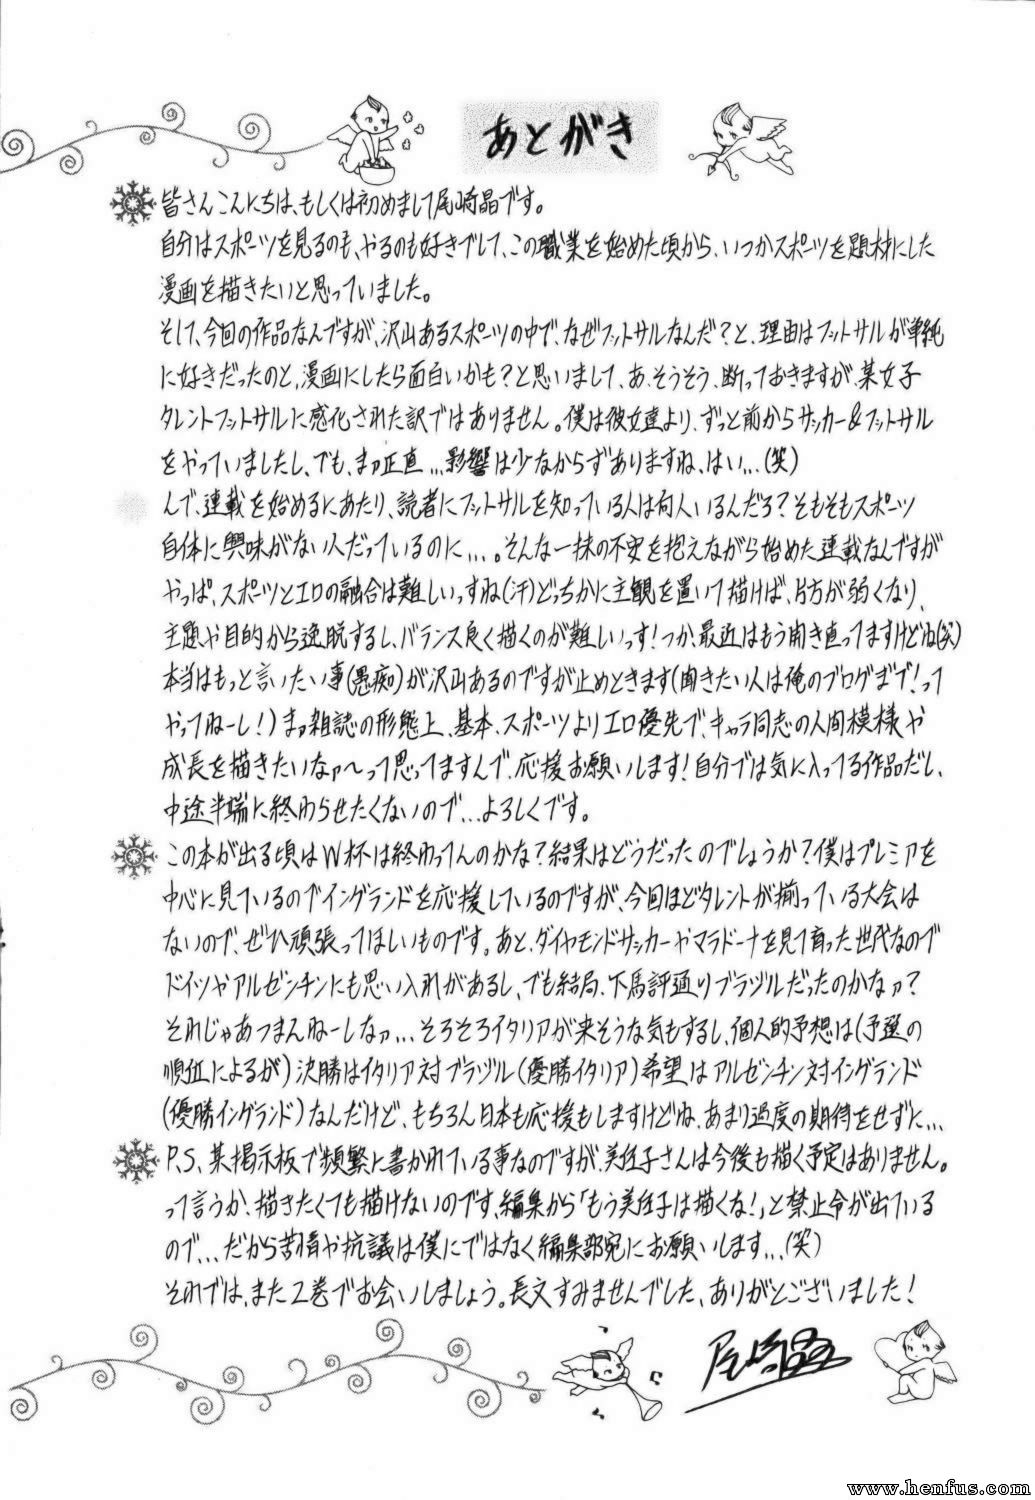 あとがき
皆さんこんにちは、もしくは初めまして尾崎晶です。
自分はスポーツを見るのも、やるのも好きでして、この職業を始めた頃から、いつかスポーツを題材にした
漫画を描きたいと思っていました。
そして、今回の作品なんですが、沢山あるスポーツの中で、なぜフットサルなんだ?と、理由はフットサルが単純
に好きだったのと、漫画にしたら面白いかも?と思いまして、あ、そうそう、断っておきますが、某女子
タレントフットサルに感化された訳ではありません。僕は彼女達より、ずっと前からサッカー&フットサル
をやっていましたし、でも、まァ正直...影響は少なからずありますね、はい...(笑)
んで、連載を始めるにあたり、読者にフットサルを知っている人は何人いるんだろ?そもそもスポーツ
自体に興味がない人だっているのに...。そんな一抹の不安を抱えながら始めた連載なんですが
やっぱ、スポーツとエロの融合は難しいっすね(汗)どっちかに主観を置いて描けば、片方が弱くなり、
主題や目的から逸脱するし、バランス良く描くのが難しいっす!つか、最近はもう開き直ってますけどね(笑)
本当はもっと言いたい事(愚痴)が沢山あるのですが止めときます(聞きたい人は俺のブログまで!って
やってねーし!)まァ雑誌の形態上、基本、スポーツよりエロ優先で、キャラ同志の人間模様や
成長を描きたいなァ〜って思ってますんで、応援お願いします!自分では気に入ってる作品だし、
中途半端に終わらせたくないので...よろしくです。
この本が出る頃はW杯は終わってんのかな?結果はどうだったのでしょうか?僕はプレミアを
中心に見ているのでイングランドを応援しているのですが、今回ほどタレントが揃っている大会は
ないので、ぜひ頑張ってほしいものです。あと、ダイヤモンドサッカーやマラドーナを見て育った世代なので
ドイツやアルゼンチンにも思い入れがあるし、でも結局、下馬評通りブラヅルだったのかなァ?
それじゃあつまんねーしなァ...そろそろイタリアが来そうな気もするし、個人的予想は(予選の
順位によるが)決勝はイタリア対ブラヅル(優勝イタリア)希望はアルゼンチン対イングランド
(優勝イングランド)なんだけど、もちろん日本も応援もしますけどね、あまり過度の期待をせずに...
P.S、某掲示板で頻繁に書かれている事なのですが、美佐子さんは今後も描く予定はありません。
って言うか、描きたくても描けないのです、編集から「もう美佐子は描くな!」と禁止令が出ている
ので...だから苦情や抗議は僕にではなく編集部宛にお願いします...(笑)
それでは、また2巻でお会いしましょう。長文すみませんでした、ありがとございました!
尾崎晶
www.henfus.com